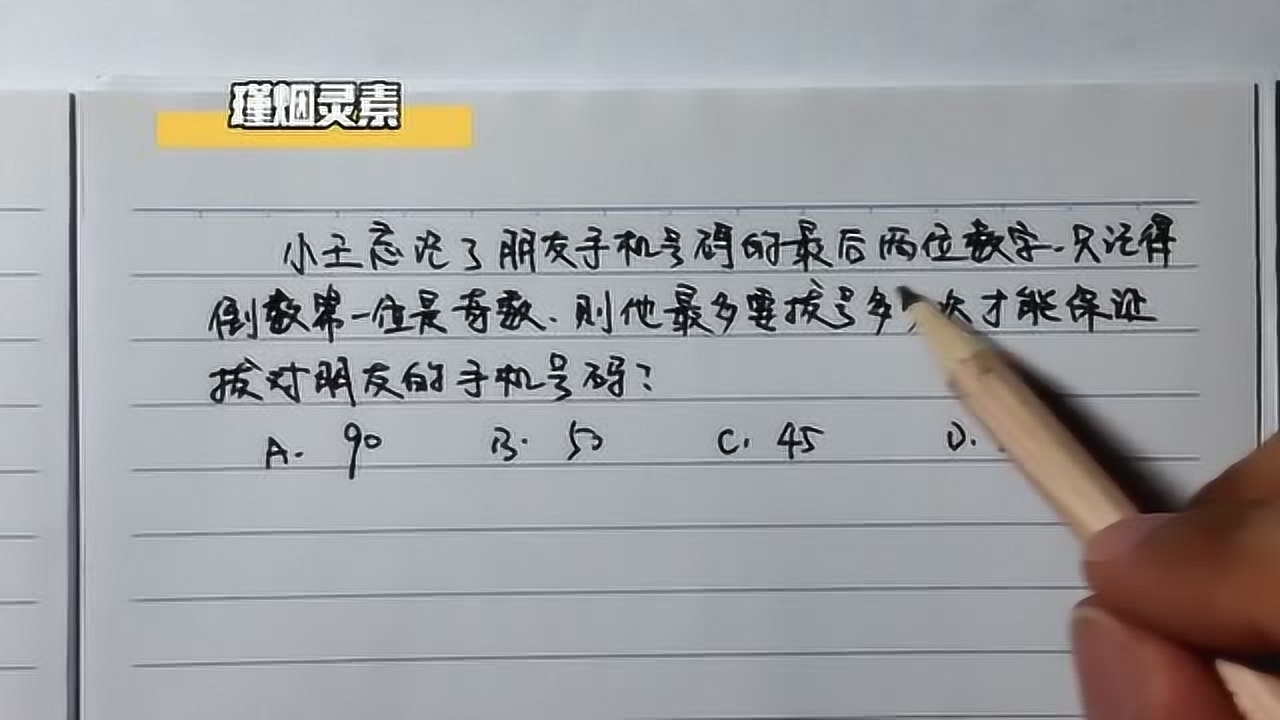 瑾烟灵素
小王忘记了朋友手机号码的最后两位数字.只记得
倒数第一位是奇数.则他最多要拔号多 次才能保证
拔对朋友的手机号码?
A. 90 B. 50 C. 45 D.